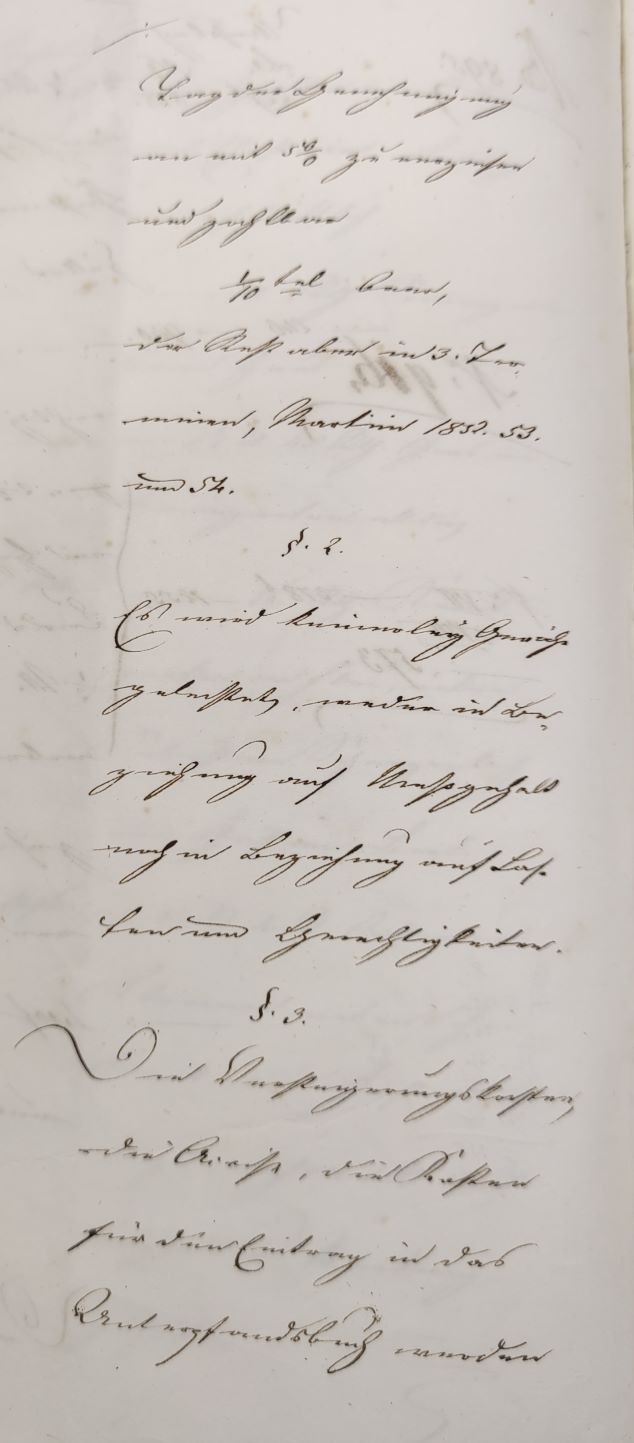 Tag der Genehmigung
an mit 5 % zu verzinsen
und zahlbar
1/10 tel baar,
der Rest aber in 3. Ter-
minen, Martini 1852. 53.
und 54.
§. 2.
Es wird keinerley Gewähr
geleistet, weder in Be-
ziehung auf Meßgehalt
noch in Beziehung auf Las-
ten und Gerechtigkeiten.
§. 3.
Die Versteigerungskosten,
die Accise, die Kosten
für den Eintrag in das
Unterpfandsbuch werden